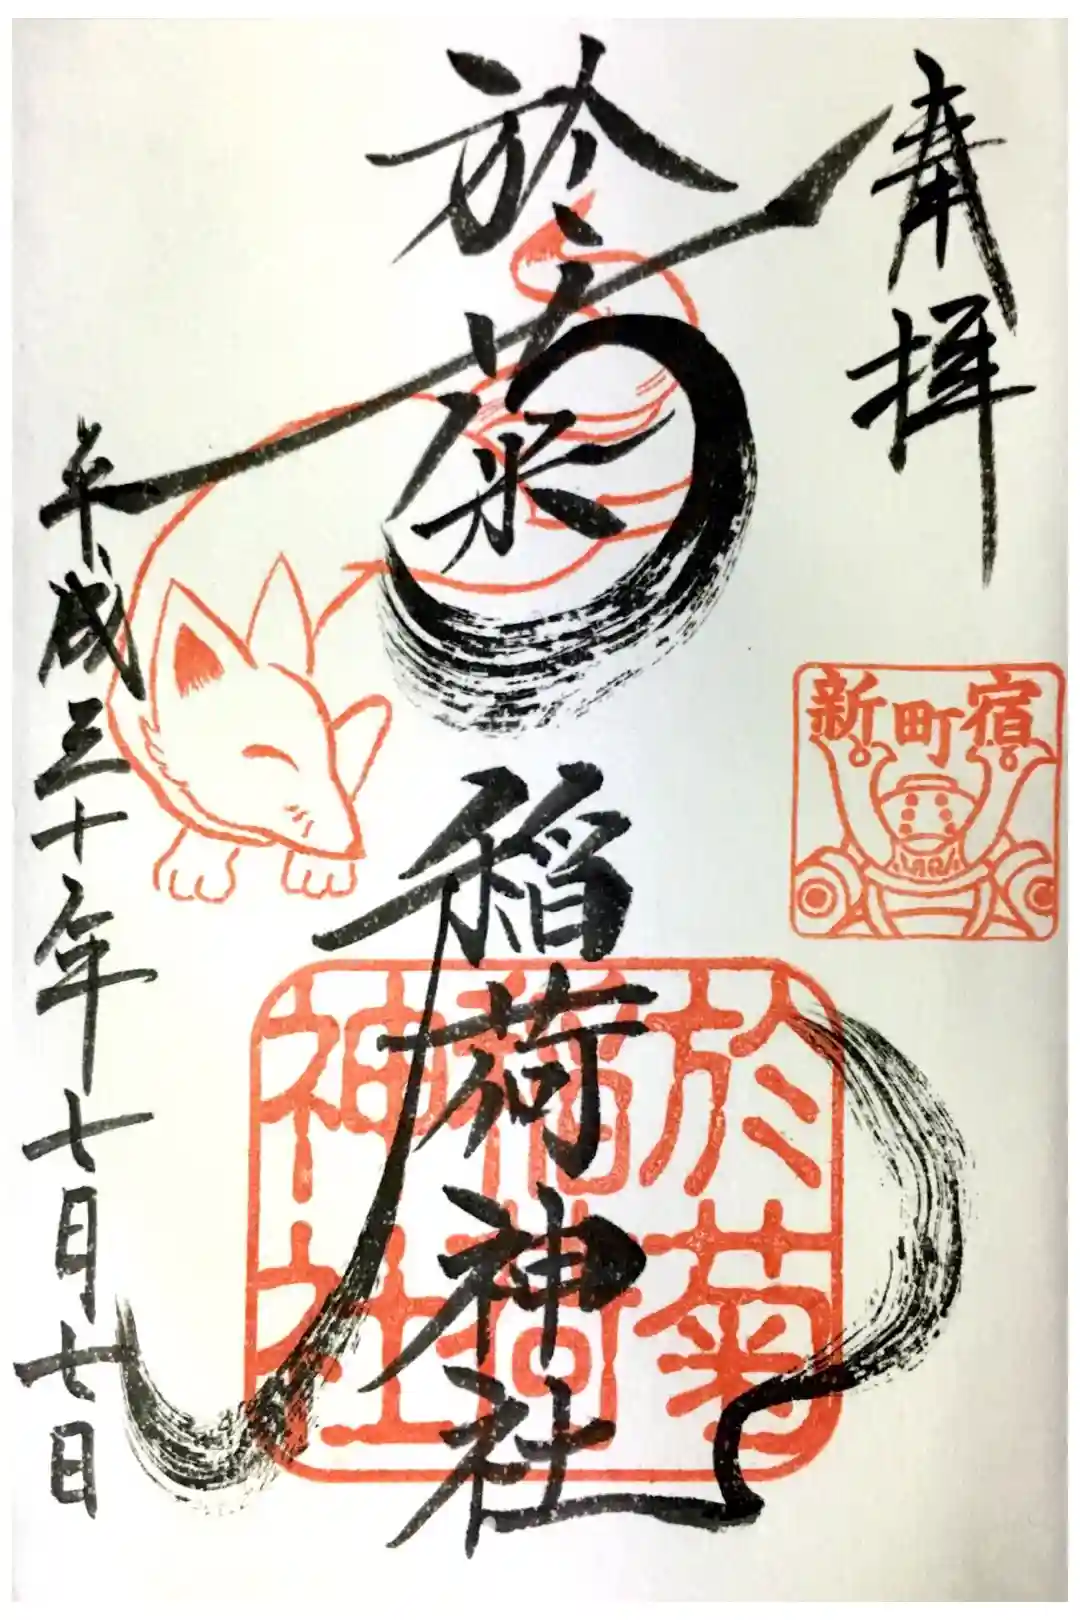 奉拝
於菊稲荷神社
平成三十年七月七日
新町宿
於菊
稲荷
神社